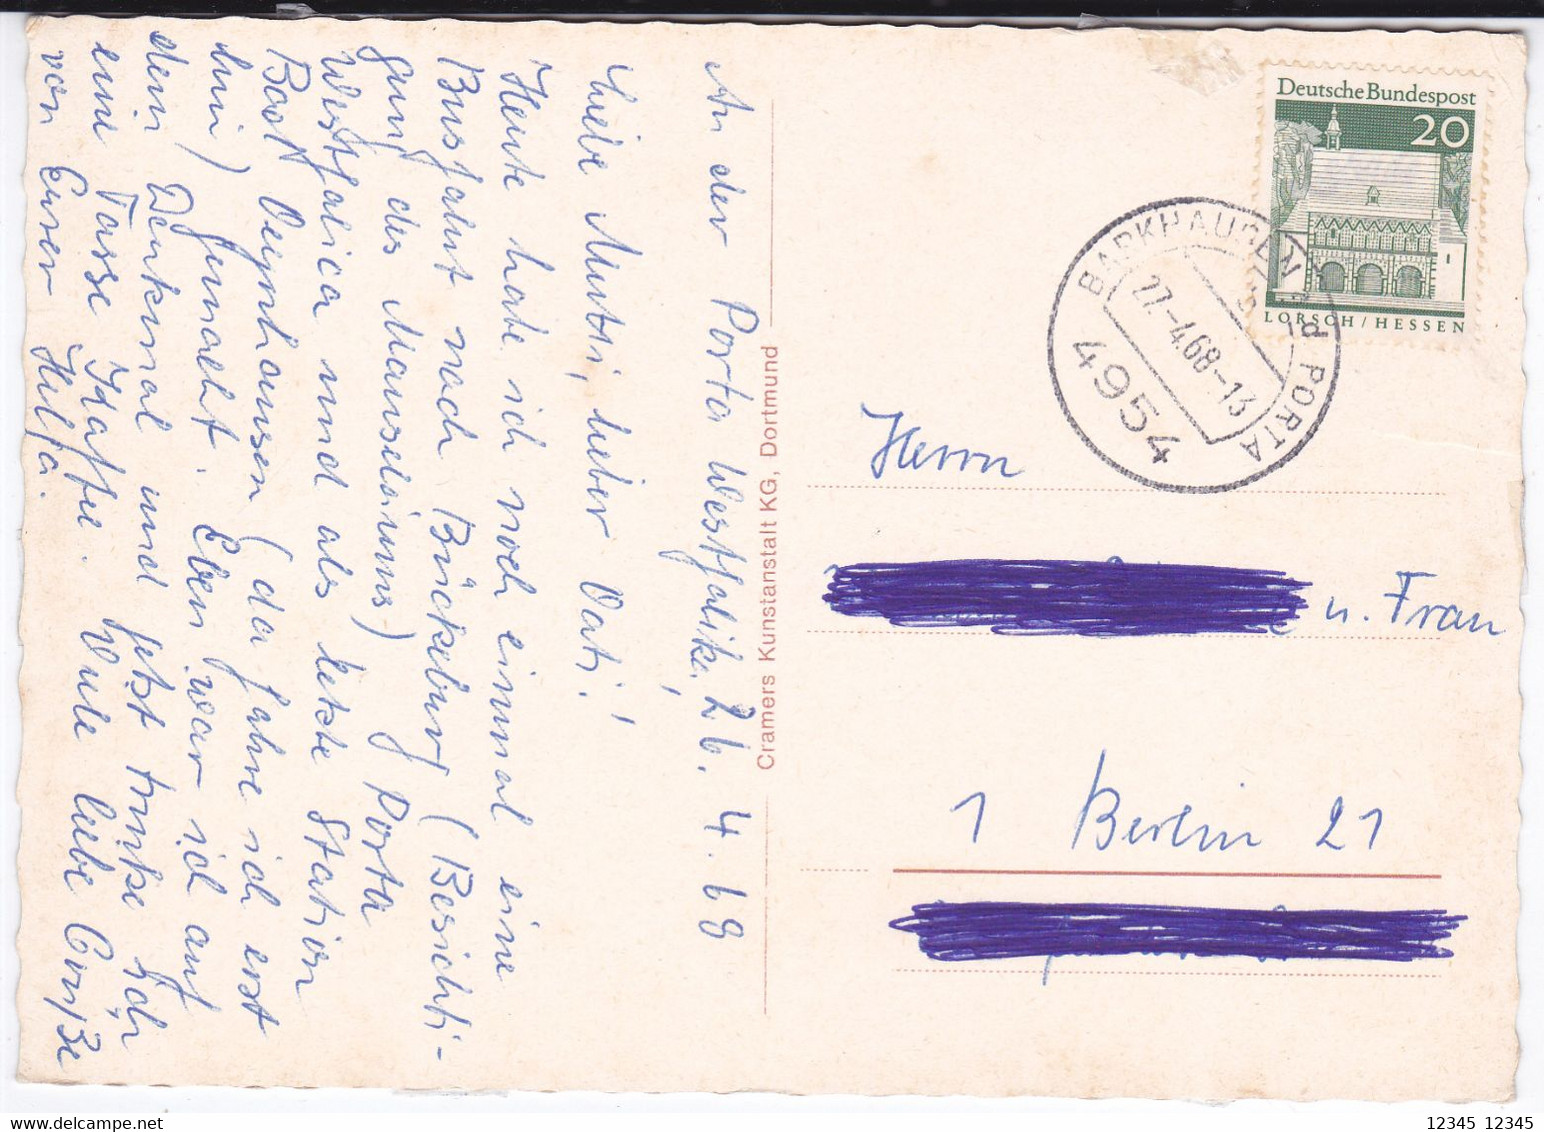 An der Porta Westfalika, 26. 4. 68
Liebe Mutti, lieber Vati!
Heute habe ich noch einmal eine
Busfahrt nach Bückeburg (Besichti-
gung des Mausoläums) Porta
Westfalica und als letzte Station
Bad Oeynhausen (da fahre ich erst
hin) gemacht. Eben war ich auf
dem Denkmal und jetzt trinke ich
eine Tasse Kaffee. Viele liebe Grüße
von Eurer Helga.
Cramers Kunstanstalt KG, Dortmund
Deutsche Bundespost
20
LORSCH / HESSEN
BARKHAUSEN A D PORTA
27.-4.68-13
4954
Herrn
u. Frau
1 Berlin 21
12345 12345